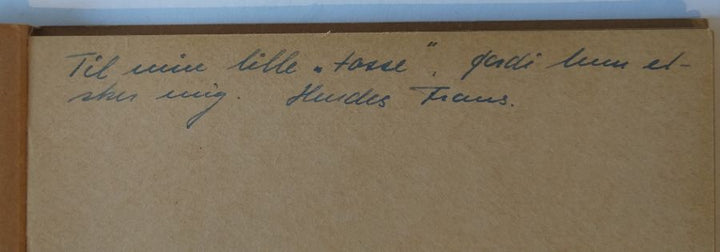 Til min lille „tosse”, fordi hun el-
sker mig. Hendes Frans.